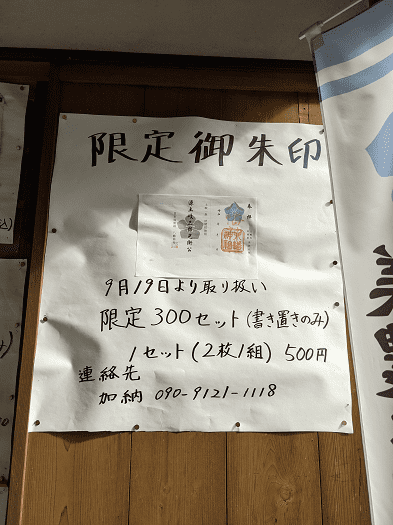 限定御朱印
9月19日より取り扱い
限定300セット(書き置きのみ)
1セット(2枚1組) 500円
連絡先
加納 090-9121-1118